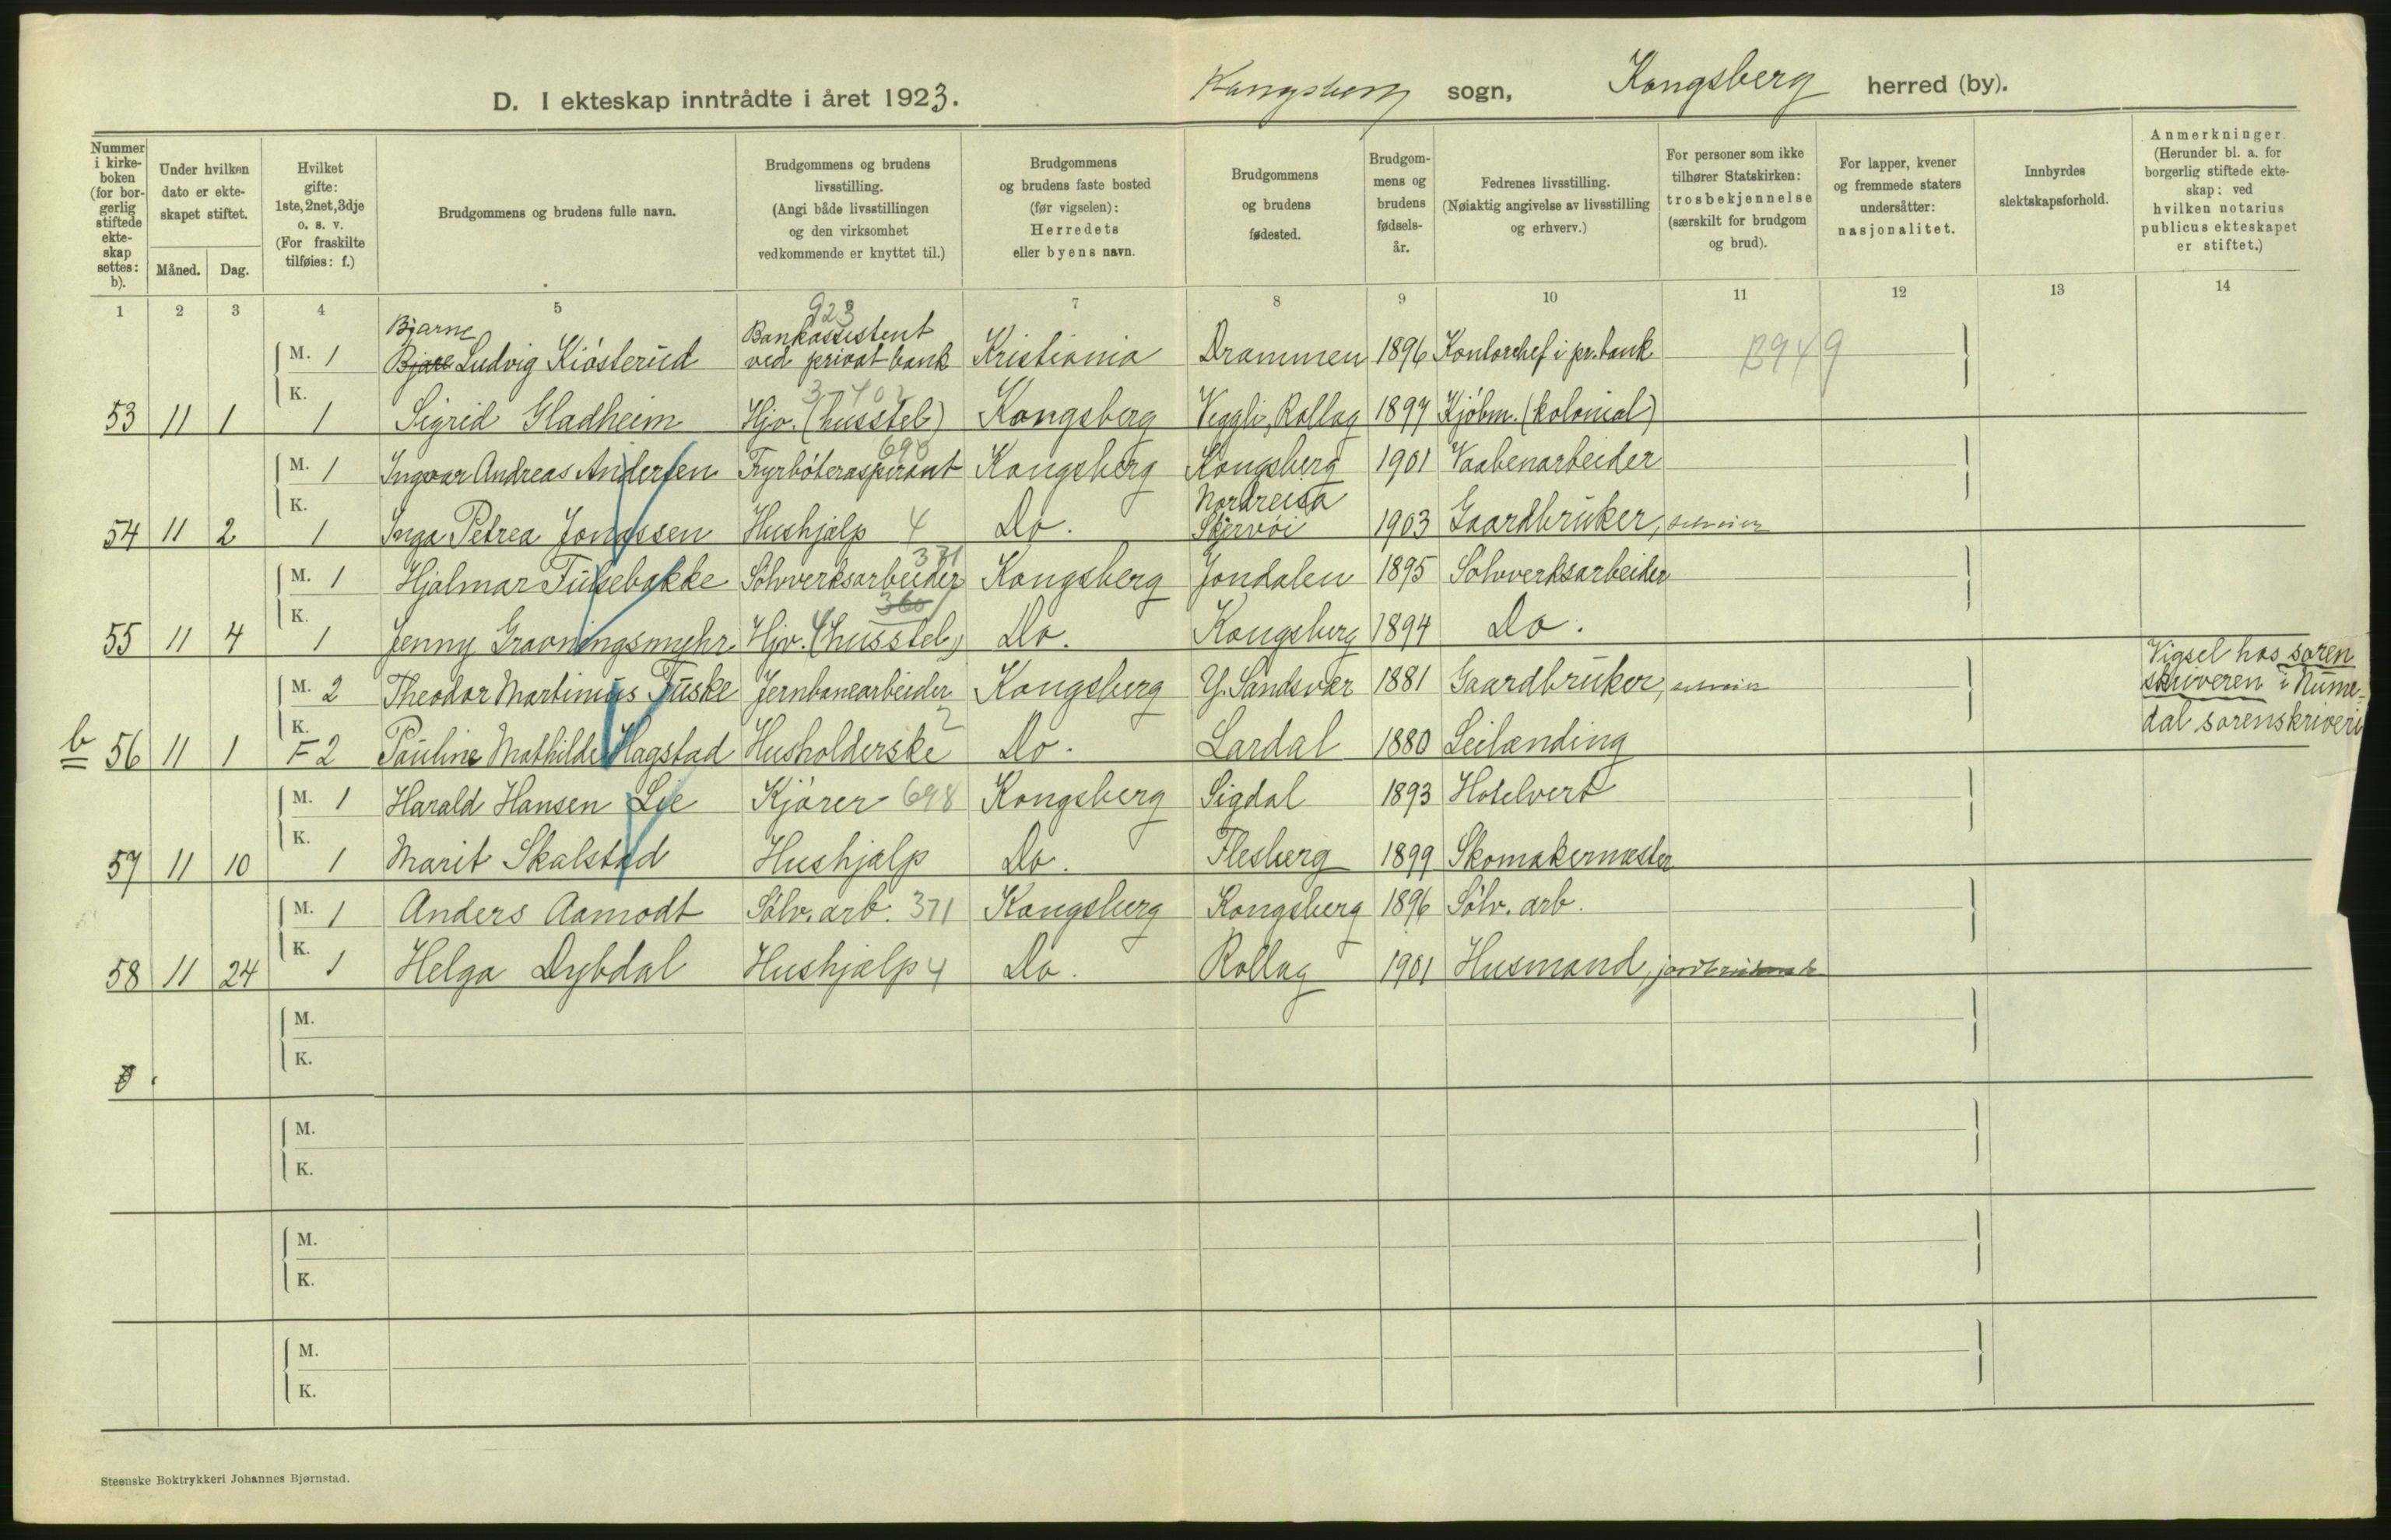 D. I ekteskap inntrådte i året 1923. Kongsberg sogn, Kongsberg herred (by).
Nummer i kirke-boken (for bor-gerlig stiftede ekte-skap settes: b).
Under hvilken dato er ekte-skapet stiftet.
Måned. Dag.
Hvilket gifte: 1ste, 2net, 3dje o. s. v. (For fraskilte tilføies: f.)
Brudgommens og brudens fulle navn.
Brudgommens og brudens livsstilling. (Angi både livsstillingen og den virksomhet vedkommende er knyttet til.)
Brudgommens og brudens faste bosted (før vigselen): Herredets eller byens navn.
Brudgommens og brudens fødested.
Brudgom-mens og brudens fødsels-år.
Fedrenes livsstilling. (Nøiaktig angivelse av livsstilling og erhverv.)
For personer som ikke tilhører Statskirken: trosbekjennelse (særskilt for brudgom og brud).
For lapper, kvener og fremmede staters undersåtter: nasjonalitet.
Innbyrdes slektskapsforhold.
Anmerkninger. (Herunder bl. a. for borgerlig stiftede ekte-skap: ved hvilken notarius publicus ekteskapet er stiftet.)
1 2 3 4 5 6 7 8 9 10 11 12 13 14
Bjarne 923 Bankassistent
M. 1 Bjare Ludvig Kiøsterud ved privat bank Kristiania Drammen 1896 Kontorchef i pr. bank B949
53 11 1 K. 1 Sigrid Gladheim Hjv. (husstel) Kongsberg Veggli, Rollag 1897 Kjøbm. (kolonial)
M. 1 Ingvar Andreas Andersen Fyrbøteraspirant 690 Kongsberg Kongsberg 1901 Vaabenarbeider
Nordreisa
54 11 2 K. 1 Inga Petrea Jonassen Hushjælp 4 Do. Skjervøi 1903 Gaardbruker, selveier
M. 1 Hjalmar Tuftebakke Sølvverksarbeider 371 Kongsberg Jondalen 1895 Sølvverksarbeider
360
55 11 4 K. 1 Jenny Gravningsmyhr Hjv. (husstel) Do. Kongsberg 1894 Do.
M. 2 Theodor Martinius Fuske Jernbanearbeider Kongsberg Y. Sandsvær 1881 Gaardbruker, selveier
Vigsel hos soren
skriveren i Nume-
dal sorenskriveri
b 56 11 1 K. F 2 Pauline Mathilde Hagstad Husholderske 2 Do. Lardal 1880 Leilænding
M. 1 Harald Hansen Lie Kjører 698 Kongsberg Sigdal 1893 Hotelvert
57 11 10 K. 1 Marit Skalstad Hushjælp Do. Flesberg 1899 Skomakermester
M. 1 Anders Aamodt Sølv. arb. 371 Kongsberg Kongsberg 1896 Sølv. arb.
58 11 24 K. 1 Helga Dybdal Hushjælp 4 Do. Rollag 1901 Husmand,
M.
K.
M.
K.
M.
K.
M.
K.
Steenske Boktrykkeri Johannes Bjørnstad.